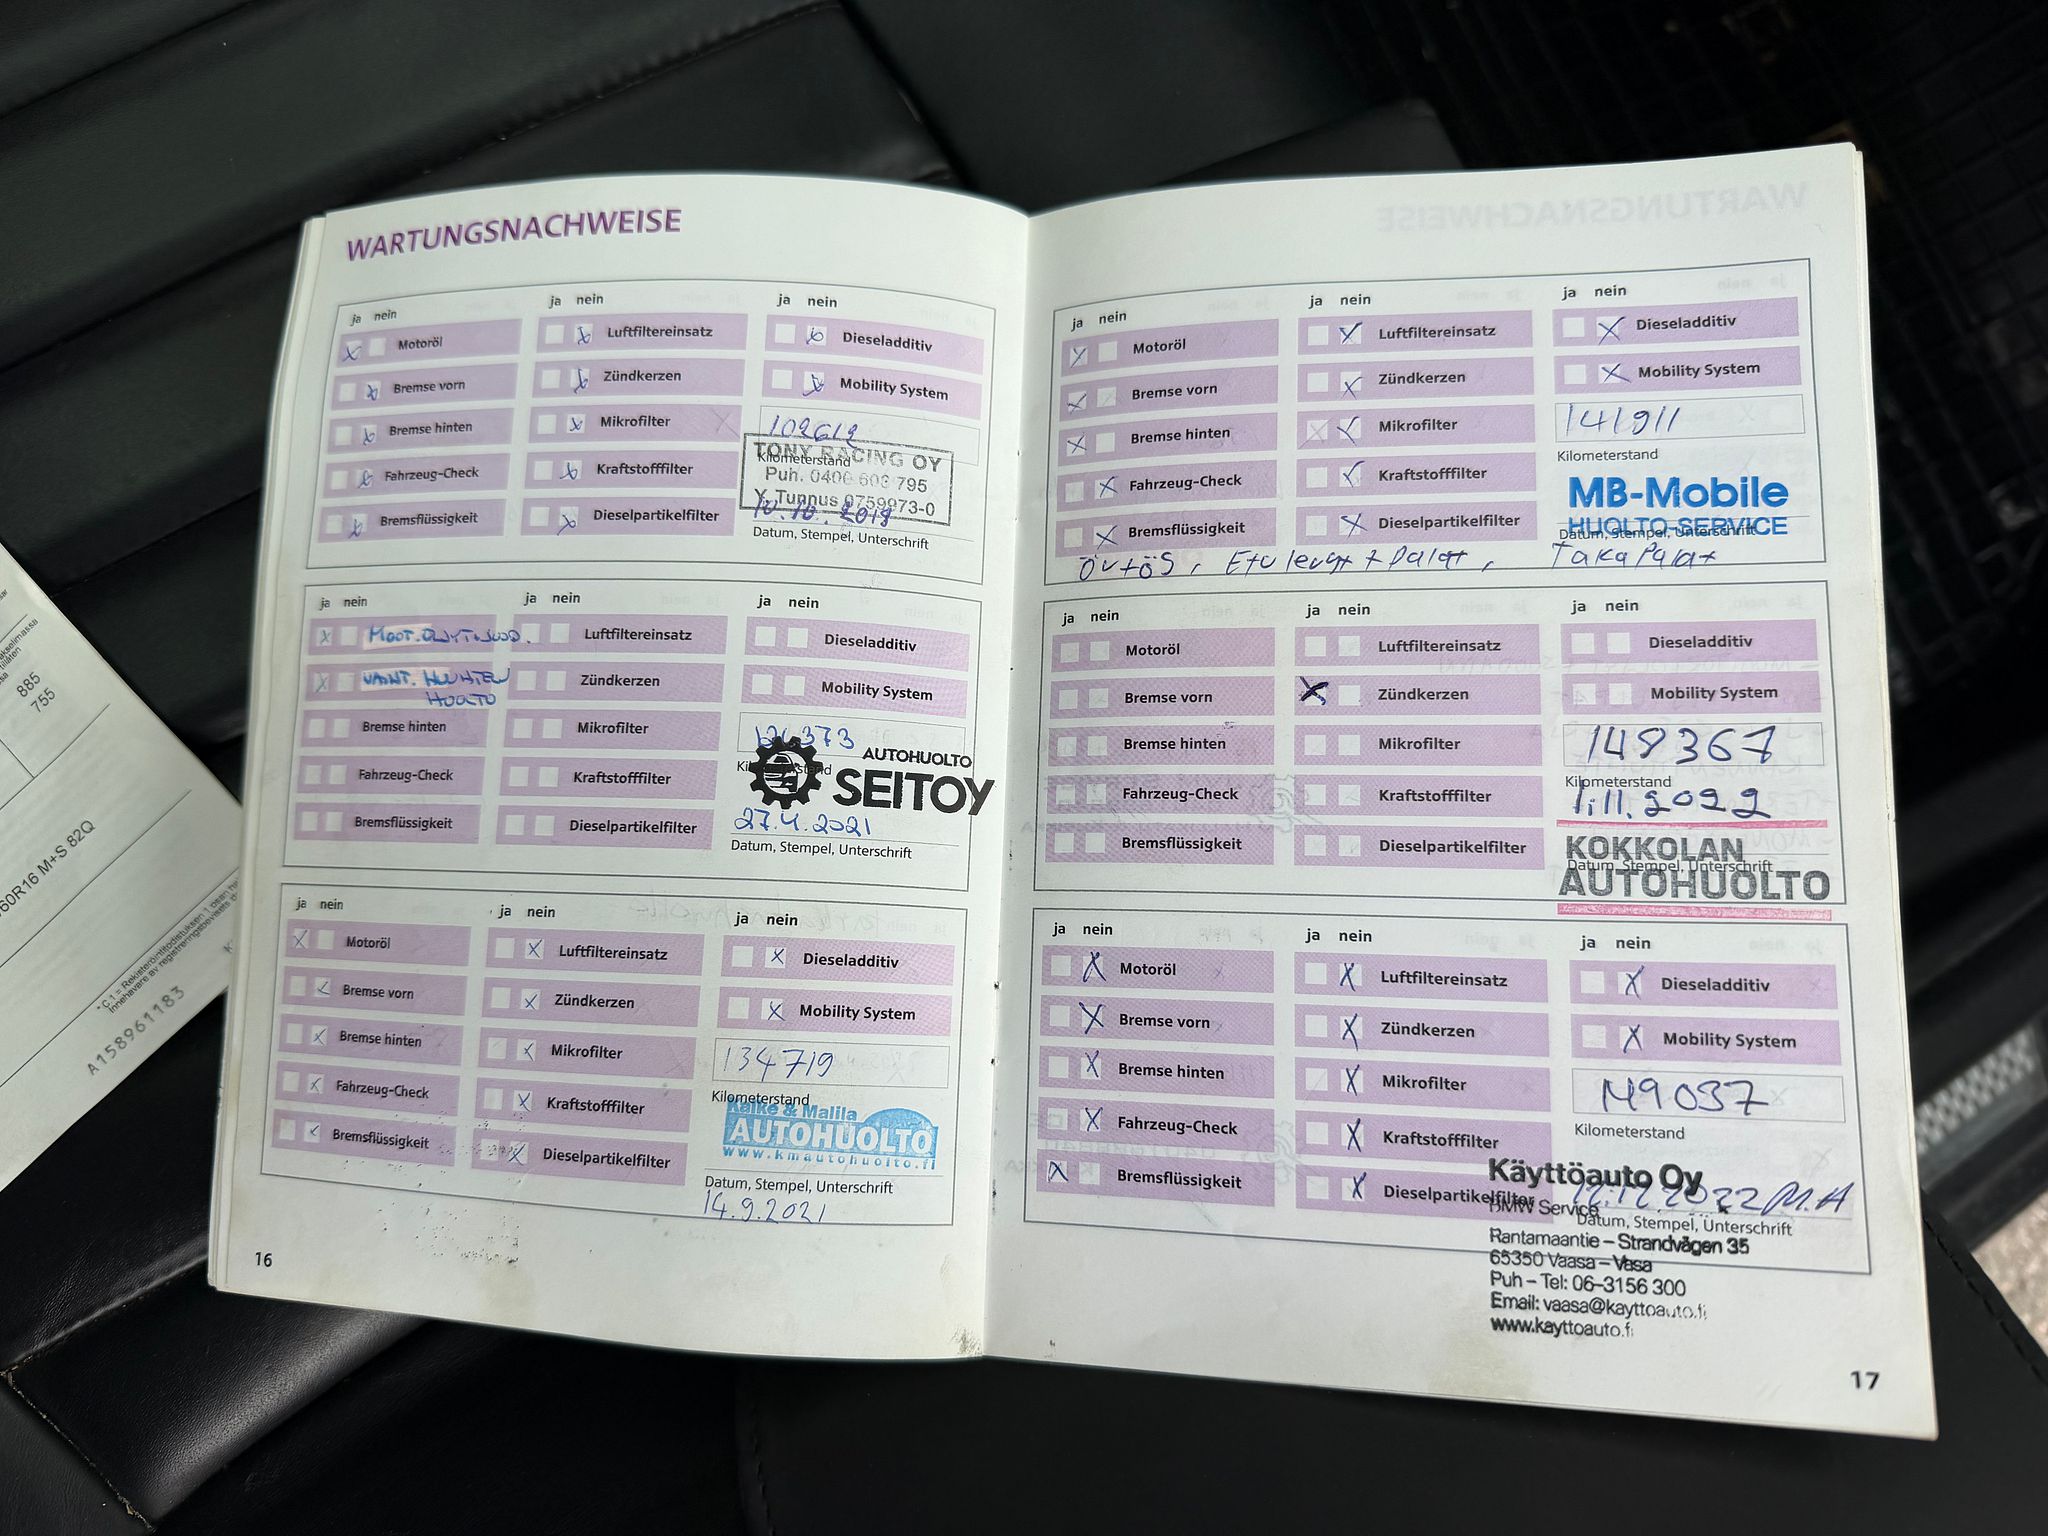 WARTUNGSNACHWEISE
ja nein
Motoröl
Bremse vorn
Bremse hinten
Fahrzeug-Check
Bremsflüssigkeit
ja nein
Luftfiltereinsatz
Zündkerzen
Mikrofilter
Kraftstofffilter
Dieselpartikelfilter
ja nein
Dieseladditiv
Mobility System
102612
Kilometerstand
TONY RACING OY
Puh. 0400 603 795
Y. Tunnus 0759973-0
10.10.2019
Datum, Stempel, Unterschrift
ja nein
HUOLTO
Bremse hinten
Fahrzeug-Check
Bremsflüssigkeit
ja nein
Luftfiltereinsatz
Zündkerzen
Mikrofilter
Kraftstofffilter
Dieselpartikelfilter
ja nein
Dieseladditiv
Mobility System
AUTOHUOLTO
SEITOY
27.4.2021
Datum, Stempel, Unterschrift
ja nein
Motoröl
Bremse vorn
Bremse hinten
Fahrzeug-Check
Bremsflüssigkeit
ja nein
Luftfiltereinsatz
Zündkerzen
Mikrofilter
Kraftstofffilter
Dieselpartikelfilter
ja nein
Dieseladditiv
Mobility System
134719
Kilometerstand
Kalke & Malila
AUTOHUOLTO
www.kmautohuolto.fi
Datum, Stempel, Unterschrift
14.9.2021
16
ja nein
Motoröl
Bremse vorn
Bremse hinten
Fahrzeug-Check
Bremsflüssigkeit
ja nein
Luftfiltereinsatz
Zündkerzen
Mikrofilter
Kraftstofffilter
Dieselpartikelfilter
ja nein
Dieseladditiv
Mobility System
141911
Kilometerstand
MB-Mobile
HUOLTO-SERVICE
Datum, Stempel, Unterschrift
TakaPalat
ja nein
Motoröl
Bremse vorn
Bremse hinten
Fahrzeug-Check
Bremsflüssigkeit
ja nein
Luftfiltereinsatz
Zündkerzen
Mikrofilter
Kraftstofffilter
Dieselpartikelfilter
ja nein
Dieseladditiv
Mobility System
148367
Kilometerstand
1.11.2022
KOKKOLAN
Datum, Stempel, Unterschrift
AUTOHUOLTO
ja nein
Motoröl
Bremse vorn
Bremse hinten
Fahrzeug-Check
Bremsflüssigkeit
ja nein
Luftfiltereinsatz
Zündkerzen
Mikrofilter
Kraftstofffilter
Dieselpartikelfilter
ja nein
Dieseladditiv
Mobility System
149037
Kilometerstand
Käyttöauto Oy
12.12.2022 M.A
BMW Service
Datum, Stempel, Unterschrift
Rantamaantie – Strandvägen 35
65350 Vaasa – Vasa
Puh – Tel: 06–3156 300
Email: vaasa@kayttoauto.fi
www.kayttoauto.fi
17
885
755
60R16 M+S 82Q
A158961183